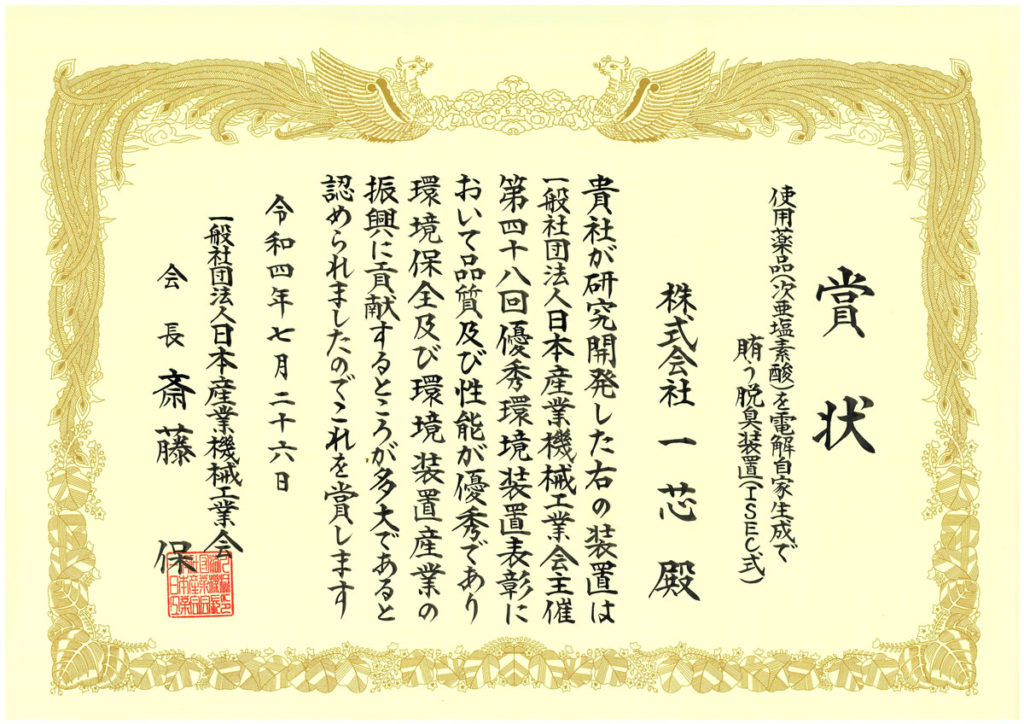 賞状
使用薬品(次亜塩素酸)を電解自家生成で
賄う脱臭装置(ISEC式)
株式会社一芯殿
貴社が研究開発した右の装置は
一般社団法人日本産業機械工業会主催
第四十八回優秀環境装置表彰に
おいて品質及び性能が優秀であり
環境保全及び環境装置産業の
振興に貢献するところが多大であると
認められましたのでこれを賞します
令和四年七月二十六日
一般社団法人日本産業機械工業会
会長斎藤保